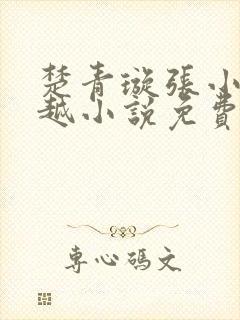 楚青璇張小
越小說免費
專心碼文